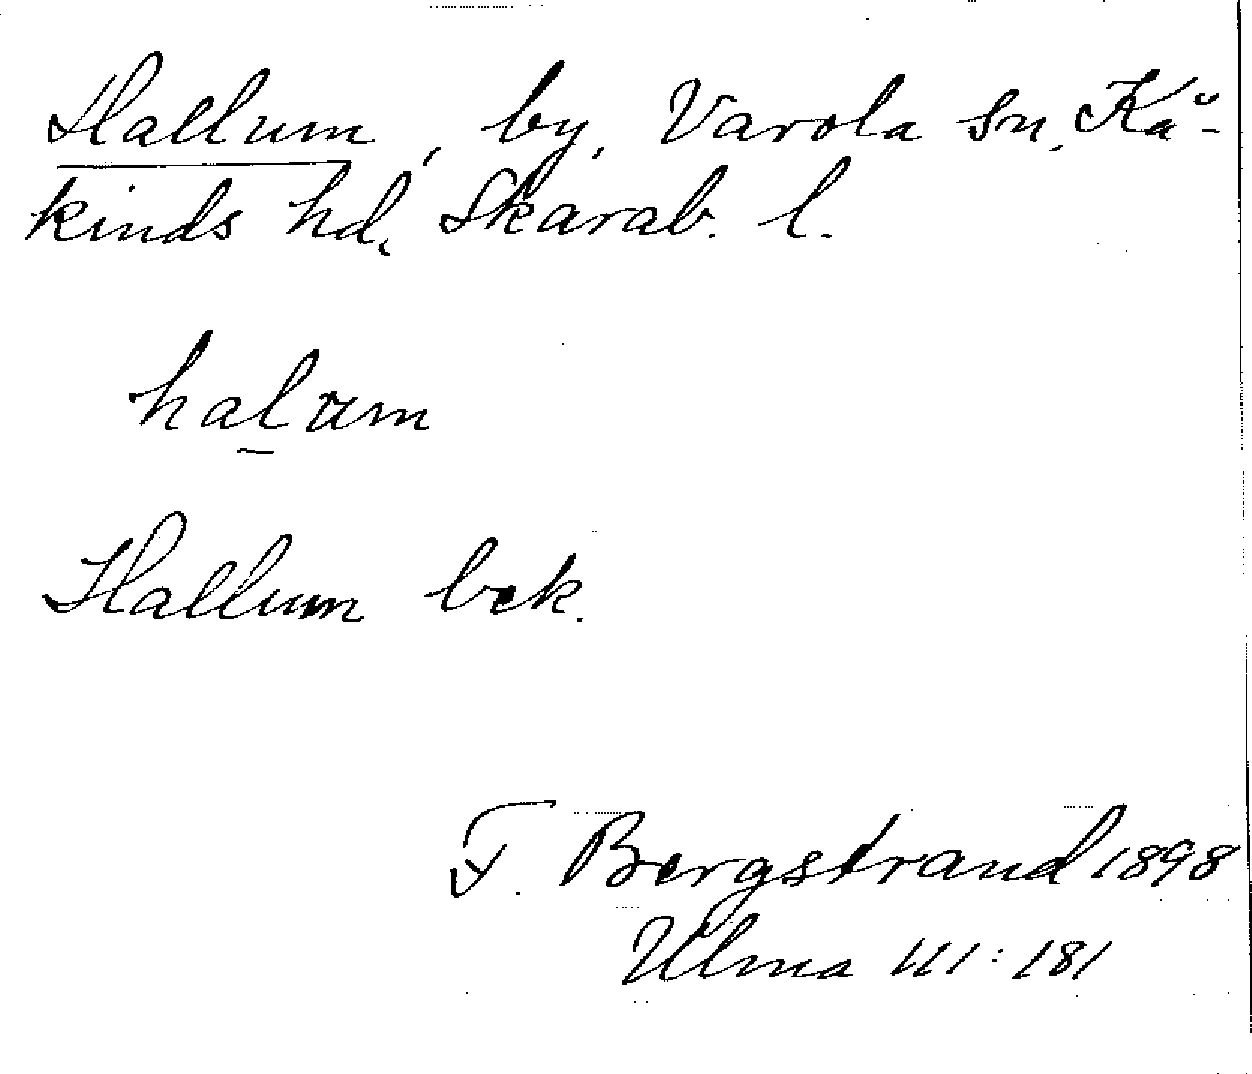 Hallum, by, Varola sn, Kå-
kinds hd, Skarab. l.
halum
Hallum bek.
F. Bergstrand 1898
Ulma 111:181